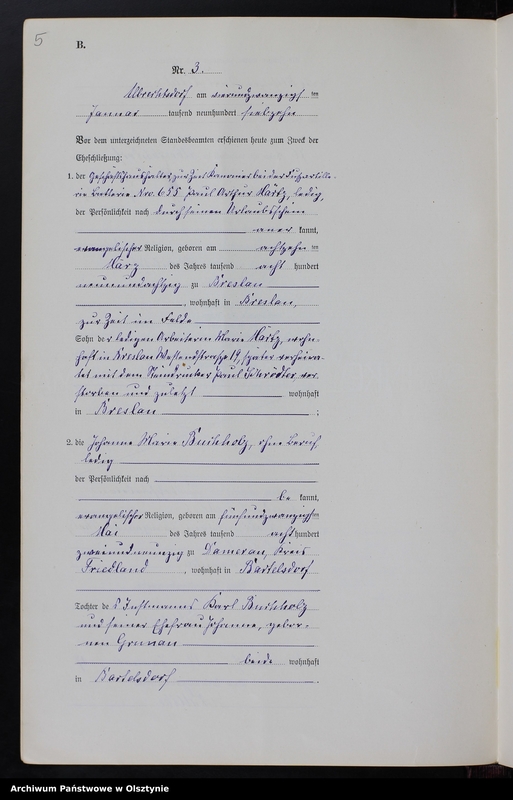 5
B.
Nr. 3.
Albrechtsdorf am vierundzwanzigsten
Januar tausend neunhundert siebzehn
Vor dem unterzeichneten Standesbeamten erschienen heute zum Zweck der
Eheschließung:
1. der Geschäftshaushälter zur Zeit Kanonier bei der Fußartille-
rie Batterie Nro. 655 Paul Arthur Härtz, ledig,
der Persönlichkeit nach durch seinen Urlaubsschein
aner kannt,
evangelischer Religion, geboren am achtzehn ten
März des Jahres tausend acht hundert
neunundachtzig zu Breslau
, wohnhaft in Breslau,
zur Zeit im Felde
Sohn der ledigen Arbeiterin Marie Härtz, wohn-
haft in Breslau 19, später verheira-
tet mit dem Steindrucker Paul Schrödter, ver-
storben und zuletzt wohnhaft
in Breslau ;
2. die Johanne Marie Buchholz, ohne Beruf
ledig
der Persönlichkeit nach
be kannt,
evangelischer Religion, geboren am fünfundzwanzigsten
Mai des Jahres tausend acht hundert
zweiundneunzig zu Damerau, Kreis
Friedland , wohnhaft in Bartelsdorf
Tochter des Instmanns Karl Buchholz
und seiner Ehefrau Johanne, gebor-
nen Grunau
beide wohnhaft
in Bartelsdorf .
Archiwum Państwowe w Olsztynie